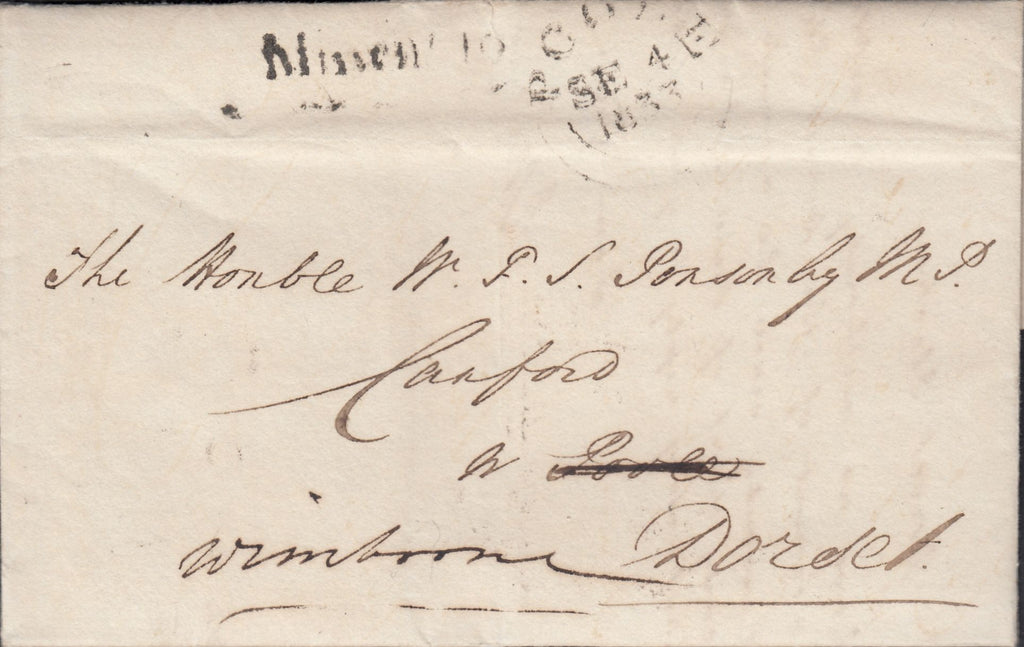 Missent to
POOLE
SE 4
1833
The Honble W. F. S. Ponsonby M P.
Canford
Nr Poole
Wimborne Dorset.